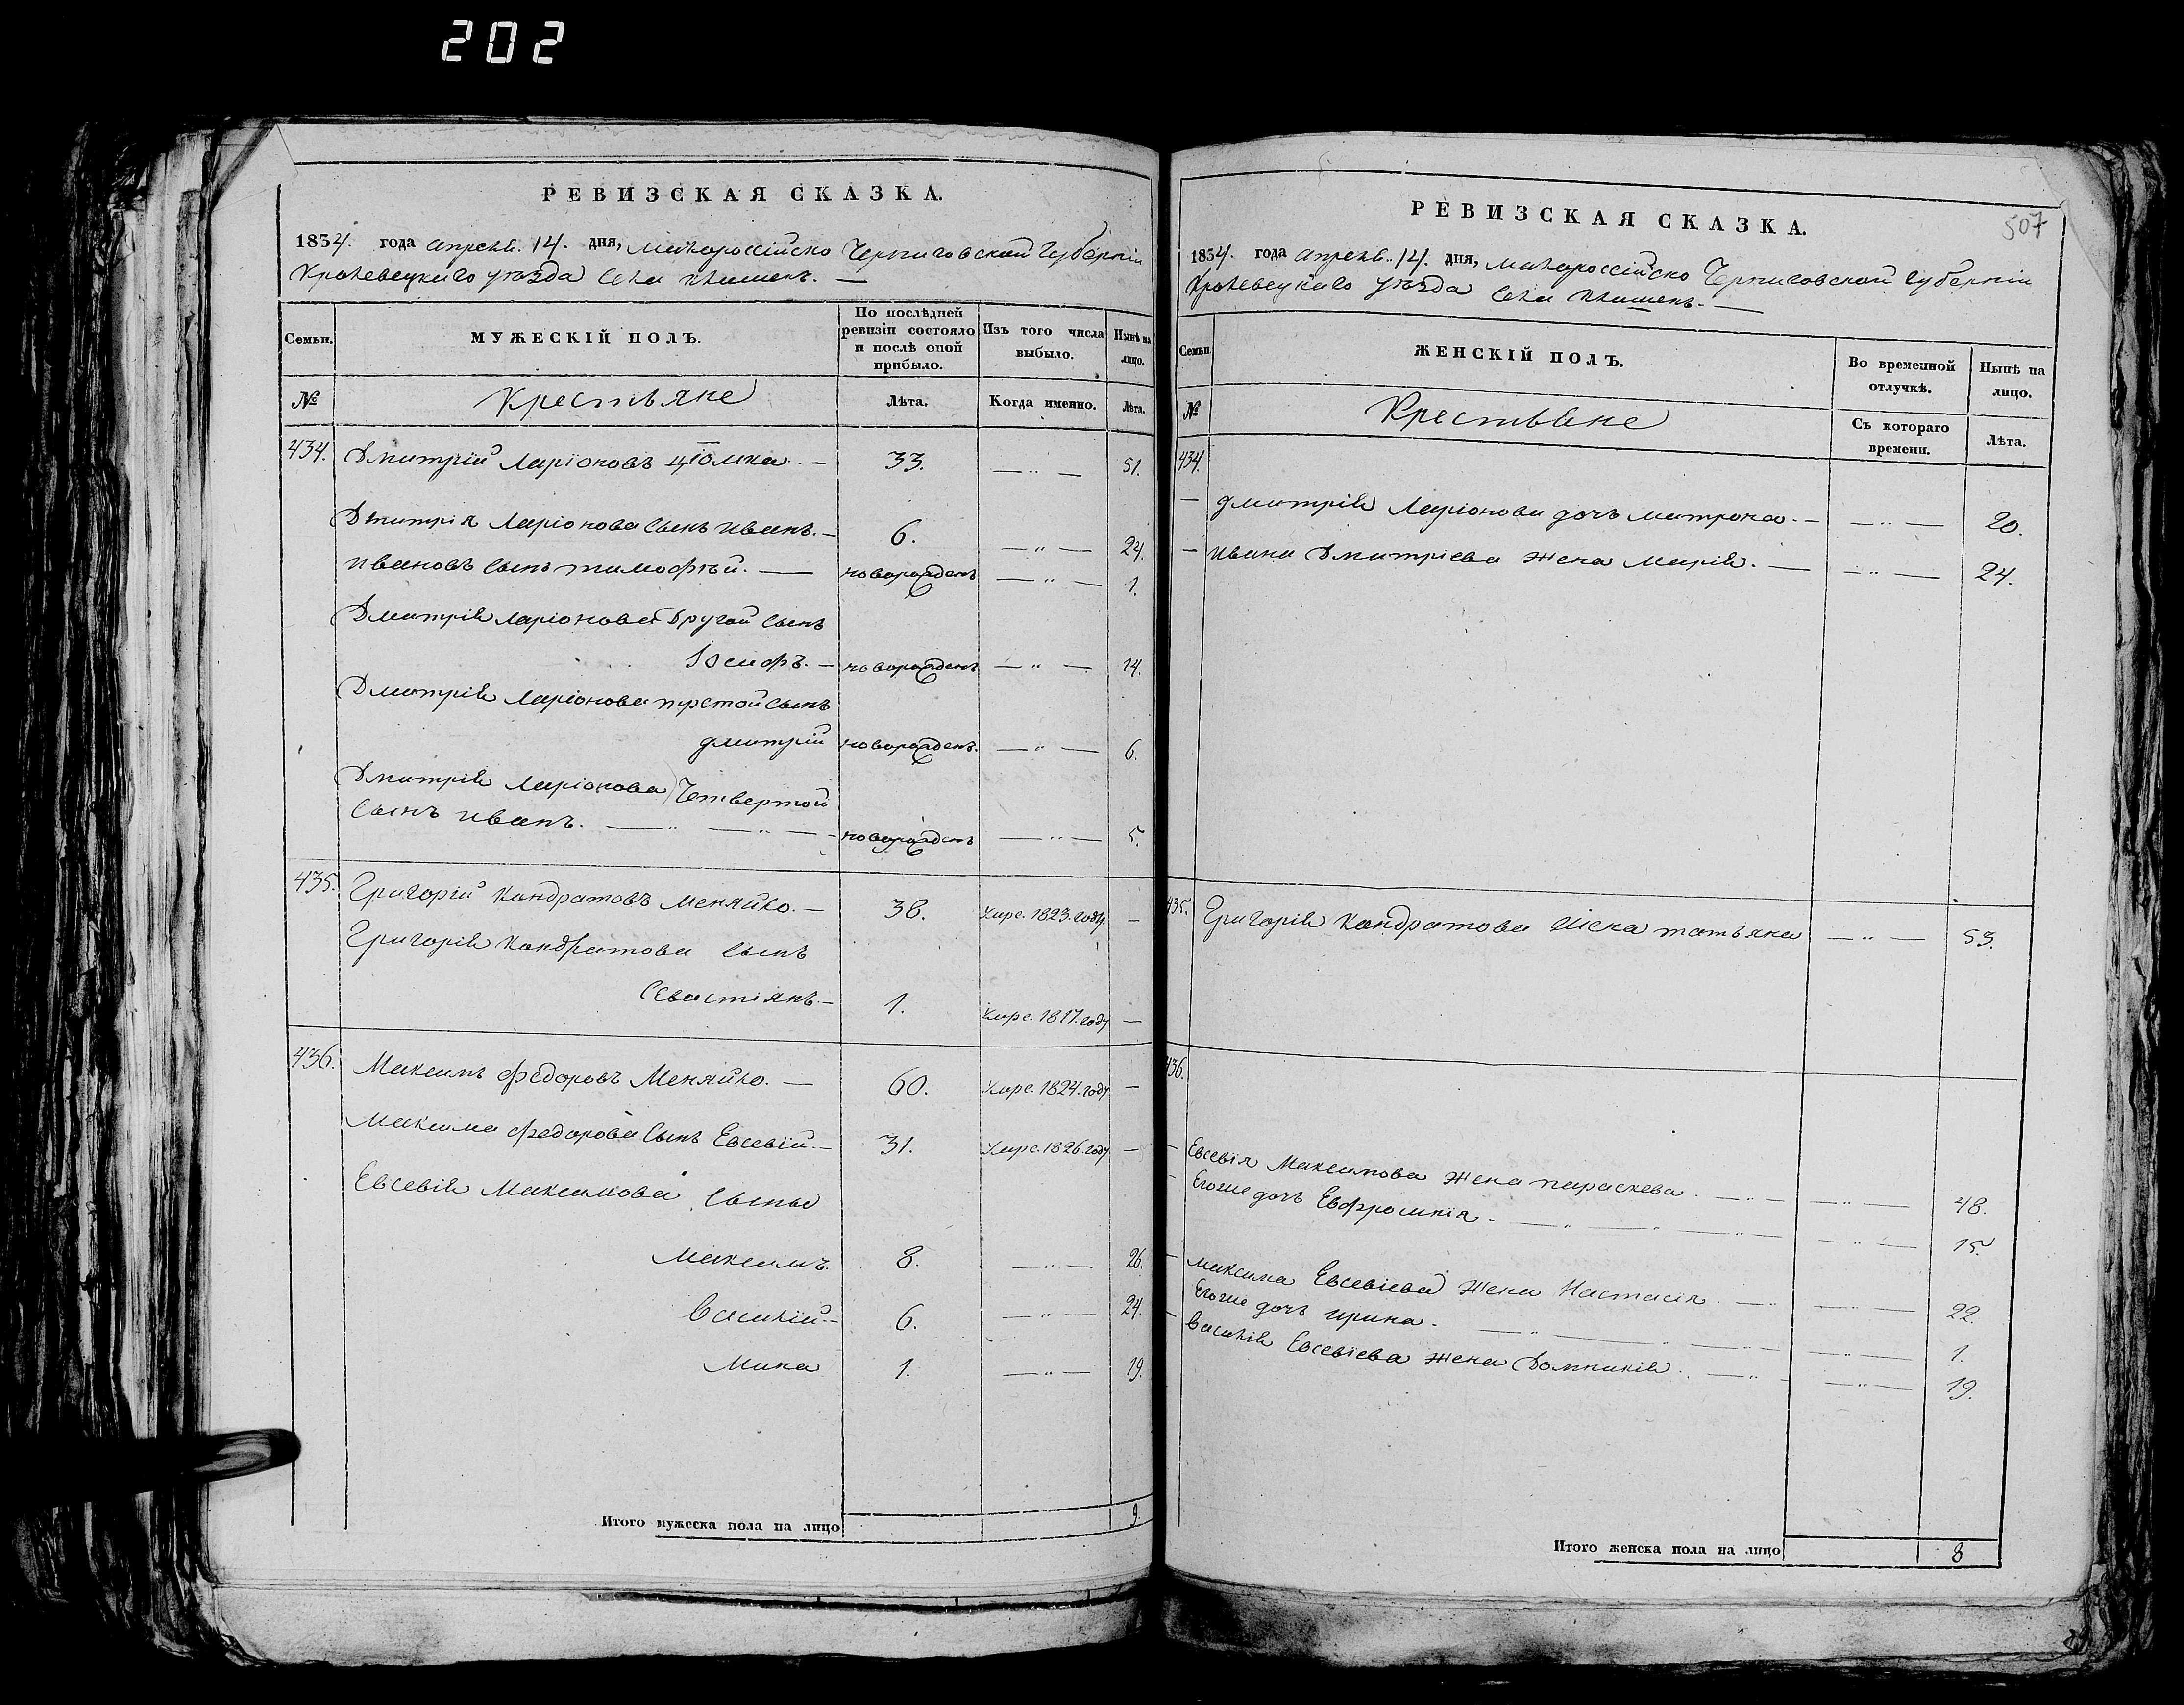 202
РЕВИЗСКАЯ СКАЗКА.
1834. года апреля. 14. дня, малороссійско Черниговской губерніи
Кролевецкаго уѣзда села
Семьи.
МУЖЕСКІЙ ПОЛЪ.
По послѣдней
ревизіи состояло
и послѣ оной
прибыло.
Изъ того числа
выбыло.
Нынѣ на
лицо.
№
Крестьяне
Лѣта.
Когда именно.
Лѣта.
434. Дмитрій Ларіоновъ — 33. — „ — 51.
Дмитрія Ларіонова сынъ иванъ. — 6. — „ — 24.
ивановъ сынъ тимофѣй. — новорожденъ — „ — 1.
Дмитрія Ларіонова Другой сынъ
Іосифъ. — новорожденъ — „ — 14.
Дмитрія Ларіонова третой сынъ
дмитрій новорожденъ. — „ — 6.
Дмитрія Ларіонова Четвертой
сынъ иванъ. — „ — „ — новорожденъ — „ — 5.
435. Григорій Кондратовъ Меняйло. — 38. умре. 1823. году —
Григорія Кондратова сынъ
Севастіянъ. — 1. умре. 1817. году —
436. Максимъ Федоровъ Меняйло. — 60. умре. 1824. году —
Максима Федорова сынъ Евсевій. — 31. умре. 1826. году —
Евсевія Максимова сыны
Максимъ. 8. — „ — 26.
Василій — 6. — „ — 24.
Мина 1. — „ — 19.
Итого мужеска пола на лицо 9.
507
РЕВИЗСКАЯ СКАЗКА.
1834. года апреля. 14. дня, малороссійско Черниговской губерніи
Кролевецкаго уѣзда села
Семьи.
ЖЕНСКІЙ ПОЛЪ.
Во временной
отлучкѣ.
Нынѣ на
лицо.
№
Крестьяне
Съ котораго
времени.
Лѣта.
434.
— дмитрія Ларіонова дочъ матрона. — — „ — 20.
— ивана Дмитріева жена Марія. — — „ — 24.
435. Григорія Кондратова жена татьяна — „ — 53.
436.
— Евсевія Максимова жена параскева. — „ — — „ — 48.
— Егоже дочъ Евфросинія. — „ — „ — — „ — 15.
— максима Евсевіева жена Настасія. — „ — „ — 22.
Егоже дочъ ирина. — „ — „ — — „ — 1.
— василія Евсевіева жена Домникія. — „ — — „ — 19.
Итого женска пола на лицо 8